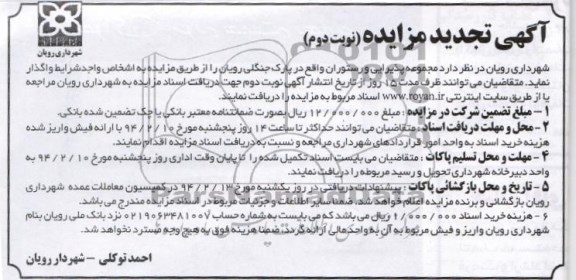 آگهی تجدید مزایده (نوبت دوم)
شهرداری رویان
شهرداری رویان در نظر دارد مجموعه پذیرایی و رستوران واقع در پارک جنگلی رویان را از طریق مزایده به اشخاص واجد شرایط واگذار
نماید. متقاضیان می توانند ظرف مدت ۱۵ روز از تاریخ انتشار آگهی نوبت دوم جهت دریافت اسناد مزایده به شهرداری رویان مراجعه
یا از طریق سایت اینترنتی www.royan.ir اسناد مربوط به مزایده را دریافت نمایند.
۱- مبلغ تضمین شرکت در مزایده : مبلغ ۱۲/۰۰۰/۰۰۰ ریال بصورت ضمانتنامه معتبر بانکی یا چک تضمین شده بانکی.
۲- محل و مهلت دریافت اسناد : متقاضیان می توانند حداکثر تا ساعت ۱۴ روز پنجشنبه مورخ ۹۴/۲/۱۰ با ارائه فیش واریز شده
هزینه خرید اسناد به واحد امور قراردادهای شهرداری مراجعه و نسبت به دریافت اسناد مزایده اقدام نمایند.
۴- مهلت و محل تسلیم پاکات : متقاضیان می بایست اسناد تکمیل شده را تا پایان وقت اداری روز پنجشنبه مورخ ۹۴/۲/۱۰ به
واحد دبیرخانه شهرداری تحویل و رسید مربوطه را دریافت نمایند.
۵- تاریخ و محل بازگشائی پاکات : پیشنهادات دریافتی در روز یکشنبه مورخ ۹۴/۲/۱۳ در کمیسیون معاملات عمده شهرداری
رویان بازگشائی و برنده مزایده اعلام خواهد شد. ضمنا سایر اطلاعات و جزئیات مربوط در اسناد مزایده مندرج می باشد.
۶- هزینه خرید اسناد ۱/۰۰۰/۰۰۰ ریال می باشد که می بایست به شماره حساب ۰۲۱۹۰۶۲۴۸۱۰۰۷ نزد بانک ملی رویان بنام
شهرداری رویان واریز و فیش مربوط به آن به واحد مالی ارائه گردد. ضمنا هزینه فوق به هیچ وجه مسترد نخواهد شد.
احمد توکلی - شهردار رویان